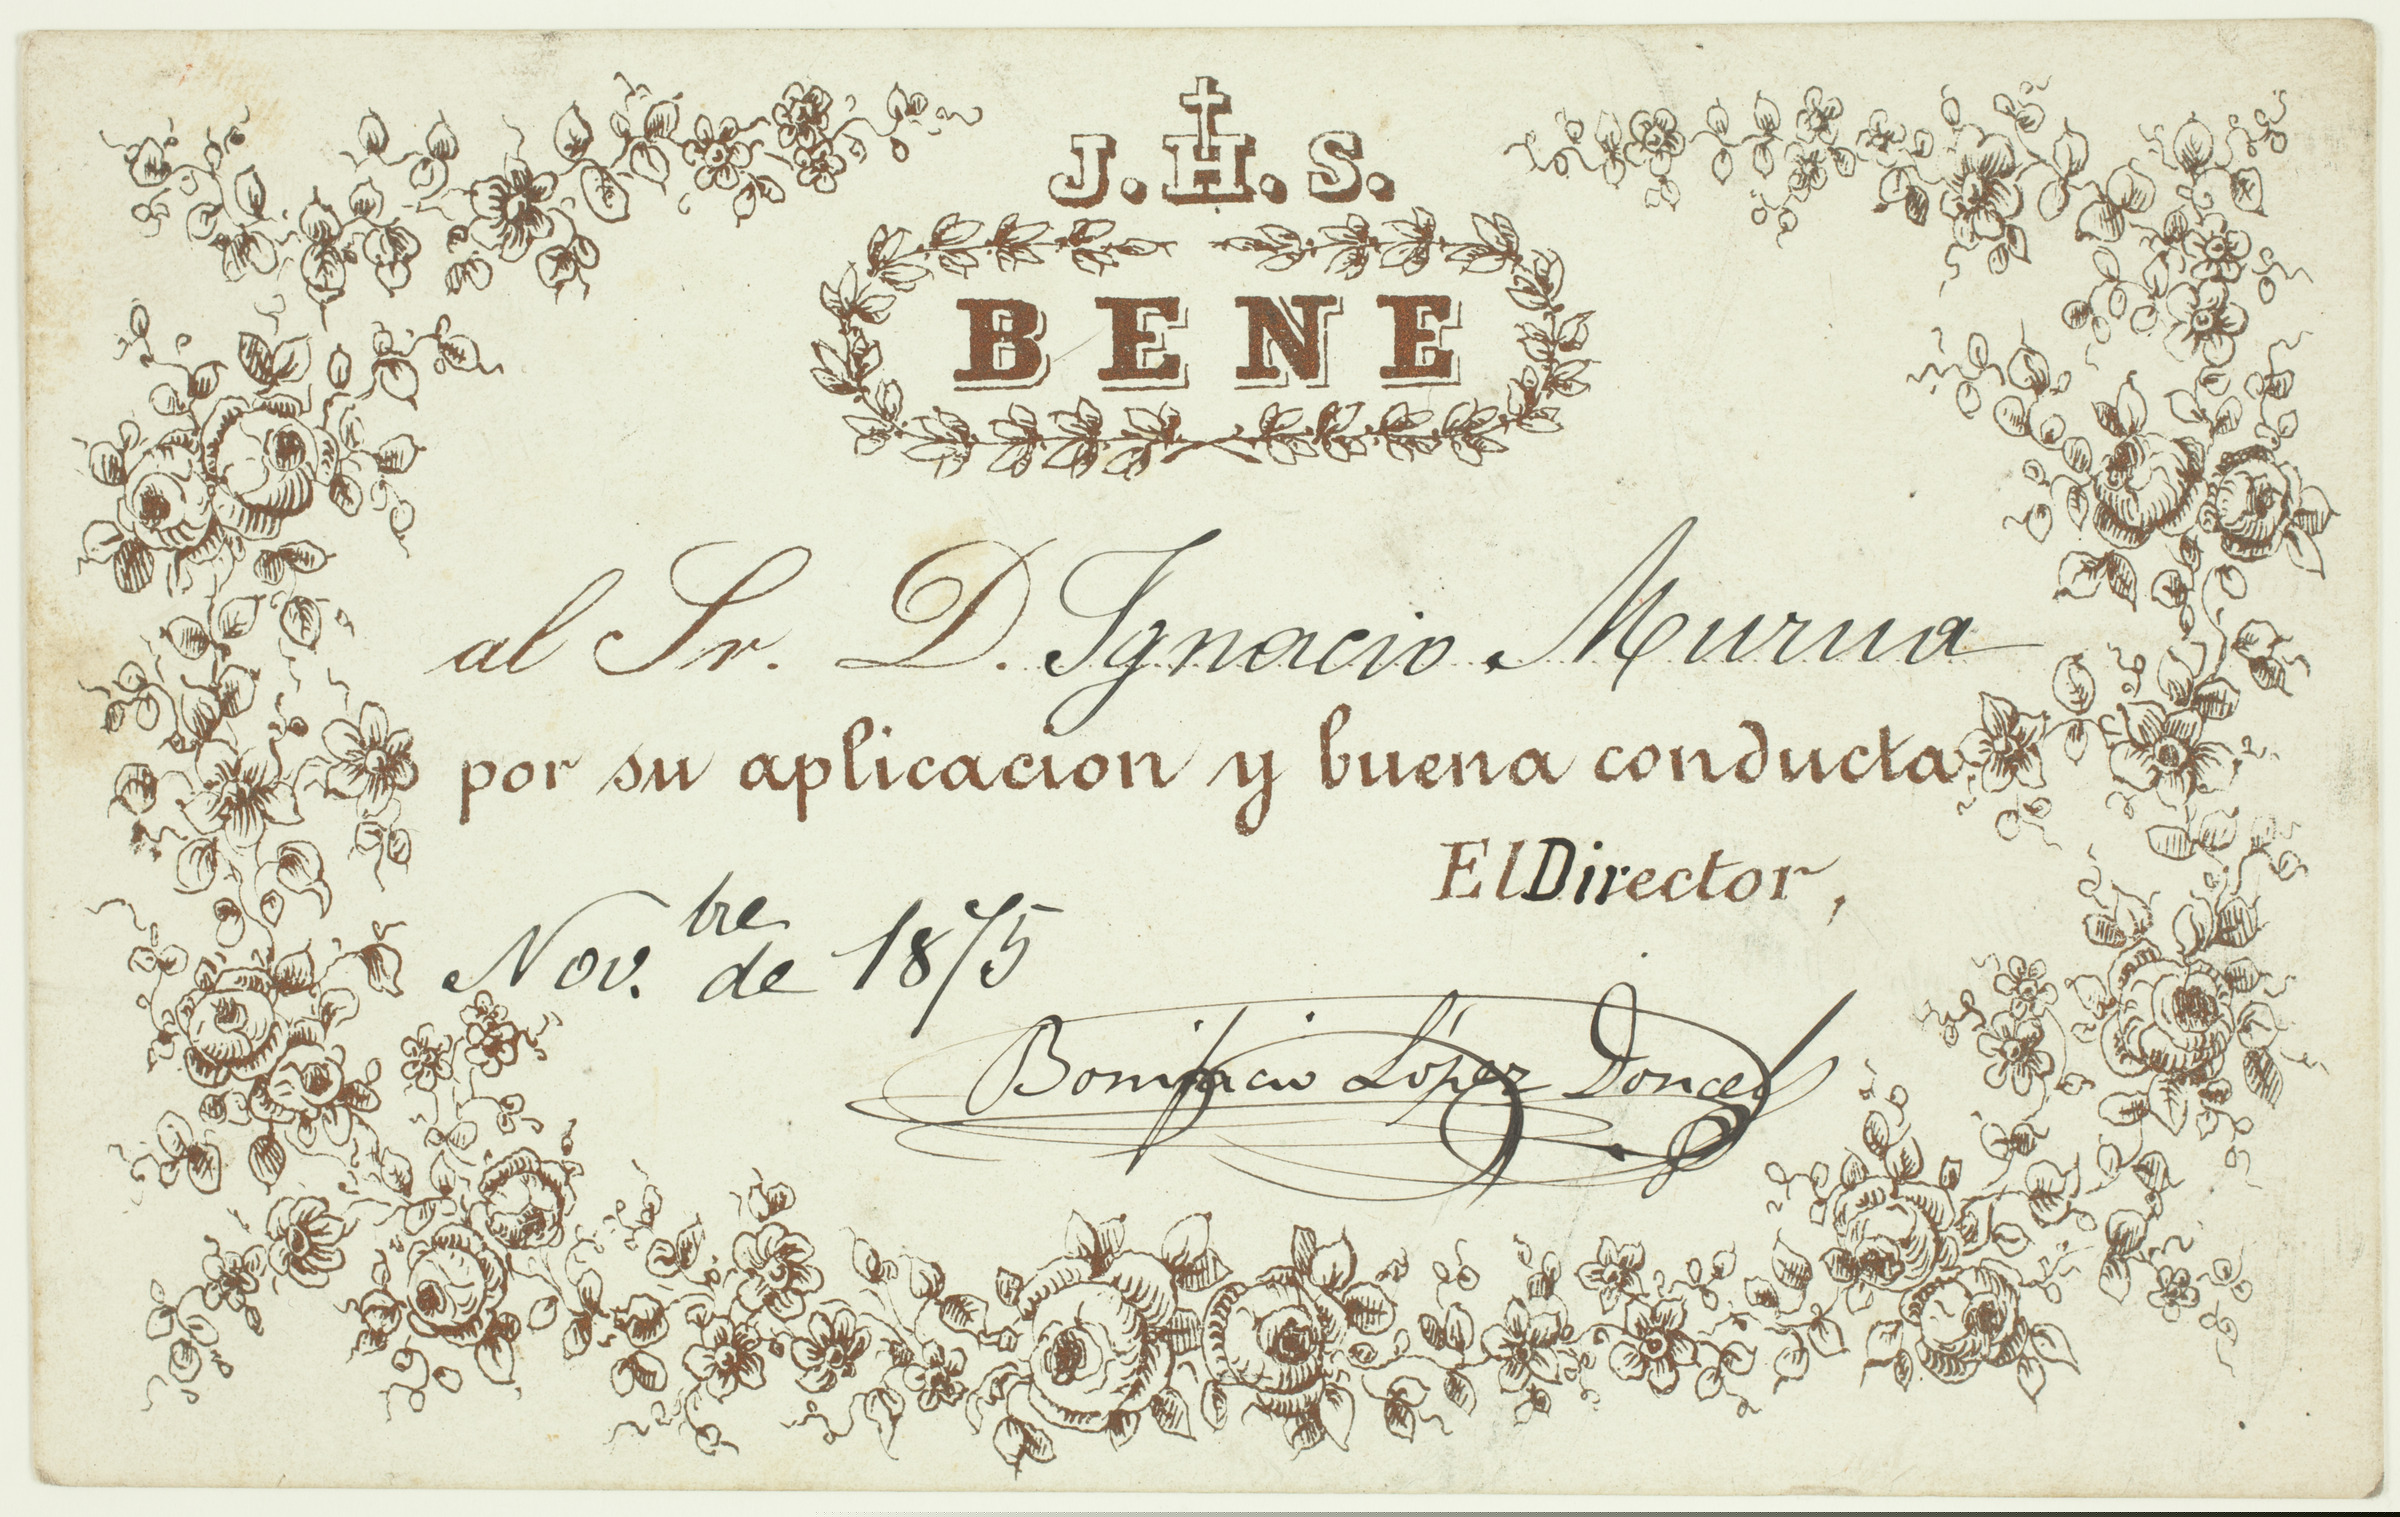 J.H.S.
BENE
al Sr. D. Ignacio Murua
por su aplicacion y buena conducta
El Director,
Nov.bre de 1875
Bonifacio López Doncel